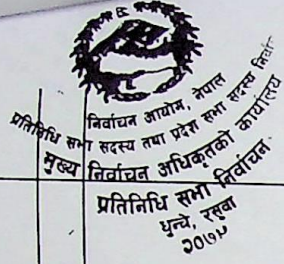 निर्वाचन आयोग, नेपाल
प्रतिनिधि सभा सदस्य तथा प्रदेश सभा सदस्य निर्वाचन
मुख्य निर्वाचन अधिकृतको कार्यालय
प्रतिनिधि सभा निर्वाचन
धुन्चे, रसुवा
२०७९